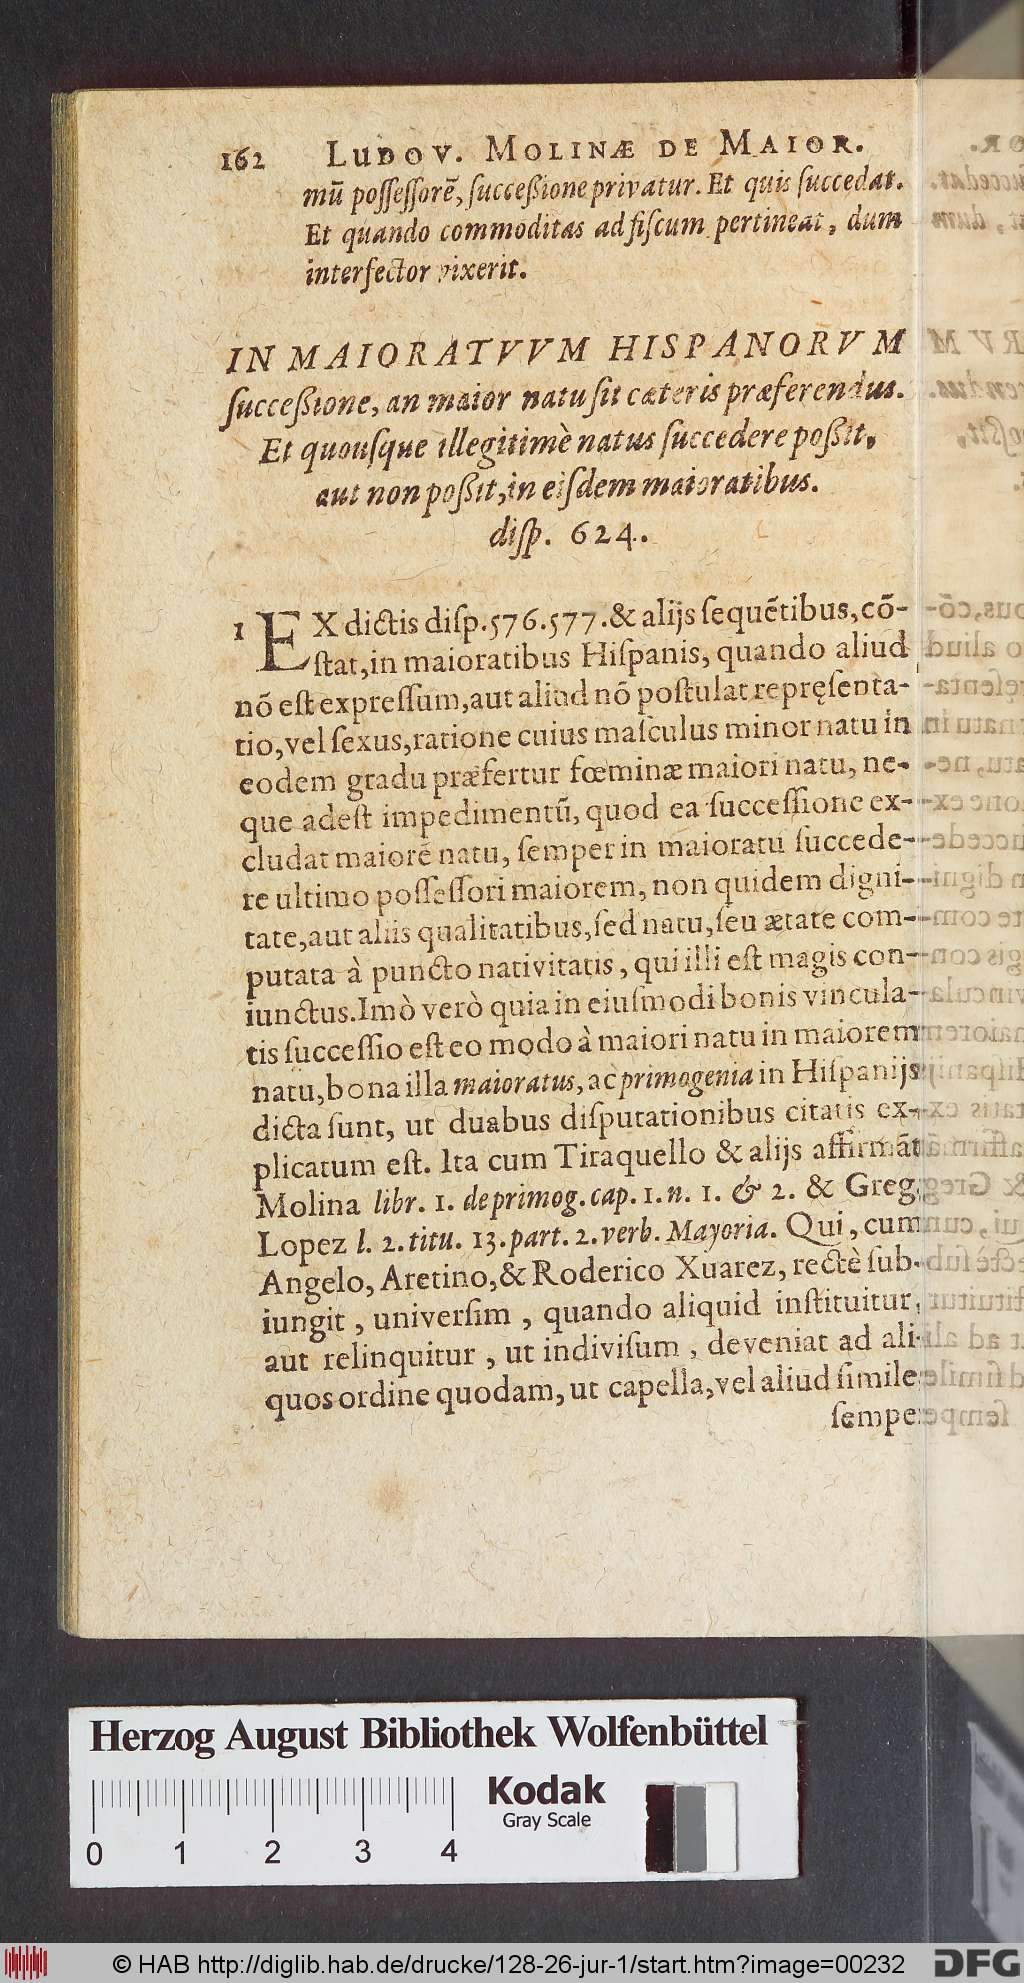 162 LUDOV. MOLINÆ DE MAIOR.
mū poſſeſſorē, ſucceßione privatur. Et quis ſuccedat.
Et quando commoditas ad fiſcum pertineat, dum
interfector vixerit.
IN MAIORATVVM HISPANORVM
ſucceßione, an maior natu ſit cæteris præferendus.
Et quouſque illegitimè natus ſuccedere poßit,
aut non poßit, in eiſdem maioratibus.
diſp. 624.
1 EX dictis diſp. 576. 577. & alijs ſequētibus, cō-
ſtat, in maioratibus Hiſpanis, quando aliud
nō eſt expreſſum, aut aliud nō poſtulat repręſenta-
tio, vel ſexus, ratione cuius maſculus minor natu in
eodem gradu præfertur fœminæ maiori natu, ne-
que adeſt impedimentū, quod ea ſucceſſione ex-
cludat maiorē natu, ſemper in maioratu ſuccede-
re ultimo poſſeſſori maiorem, non quidem digni-
tate, aut aliis qualitatibus, ſed natu, ſeu ætate com-
putata à puncto nativitatis, qui illi eſt magis con-
iunctus. Imò verò quia in eiuſmodi bonis vincula-
tis ſucceſſio eſt eo modo à maiori natu in maiorem
natu, bona illa maioratus, ac primogenia in Hiſpanijs
dicta ſunt, ut duabus diſputationibus citatis ex-
plicatum eſt. Ita cum Tiraquello & alijs affirmāt
Molina libr. 1. de primog. cap. 1. n. 1. & 2. & Greg.
Lopez l. 2. titu. 13. part. 2. verb. Mayoria. Qui, cum
Angelo, Aretino, & Roderico Xuarez, rectè ſub-
iungit, univerſim, quando aliquid inſtituitur,
aut relinquitur, ut indiviſum, deveniat ad ali-
quos ordine quodam, ut capella, vel aliud ſimile
ſempe
Herzog August Bibliothek Wolfenbüttel
Kodak
Gray Scale
0 1 2 3 4
© HAB http://diglib.hab.de/drucke/128-26-jur-1/start.htm?image=00232
DFG